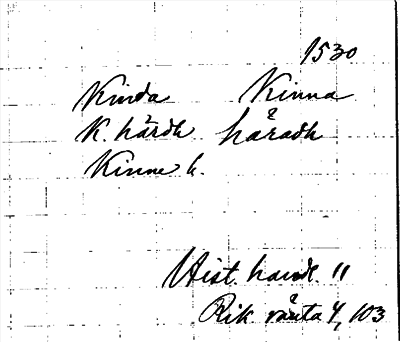 1530
Kinda Kinna
K. härdh håradh
Kinne h.
Hist. handl. 11
Rik. ränta 4, 103